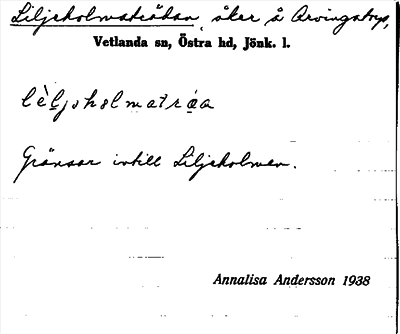 Liljeholmatrådan, åker å Arvingstorp,
Vetlanda sn, Östra hd, Jönk. l.
lèljohɐlmatråa
Gränsar intill Liljeholmen.
Annalisa Andersson 1938